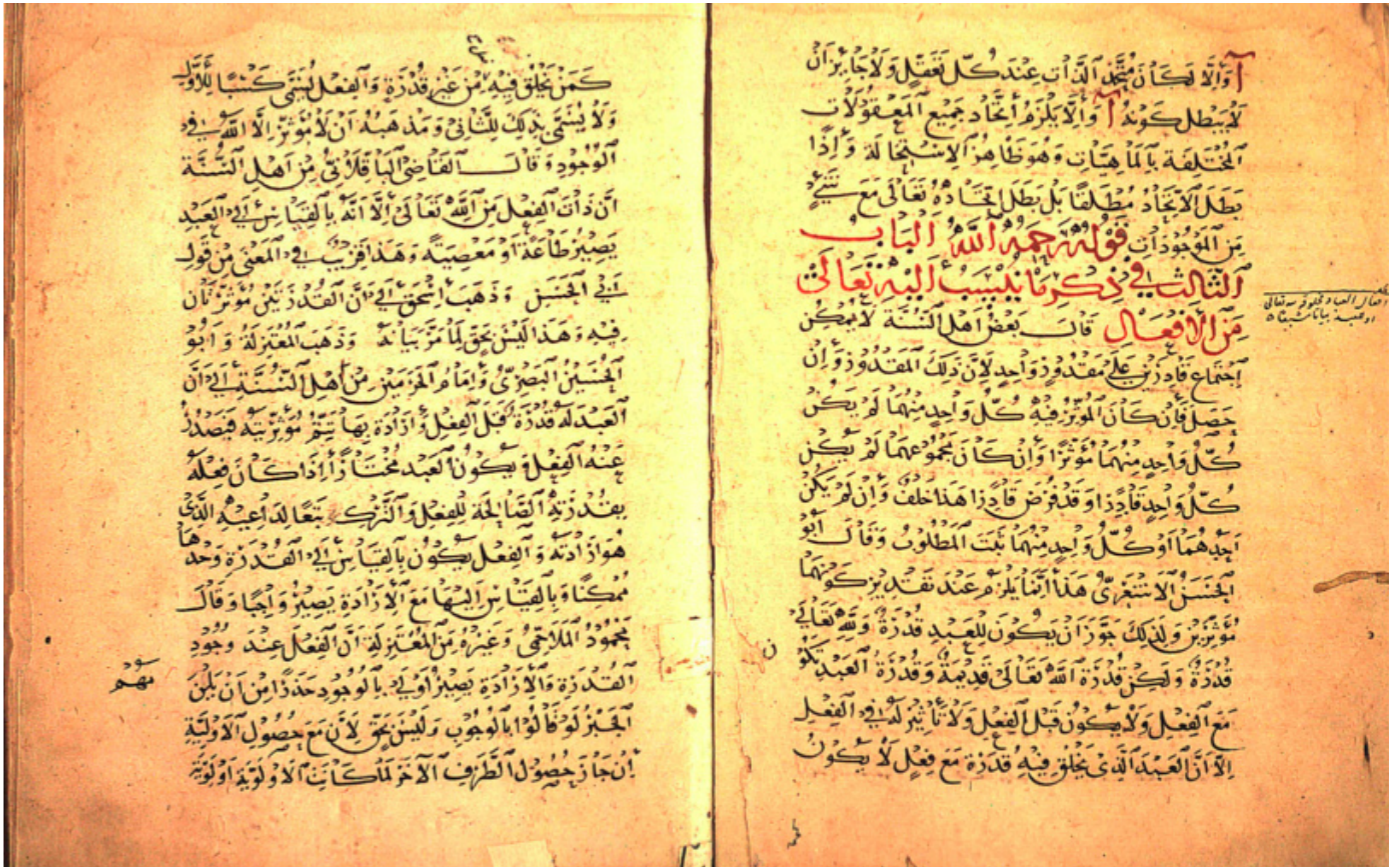 آ وإلا لكان متحد الذات عند كل تعقل ولا جايز أن
لا يبطل كونه آ وإلا يلزم اتحاد جميع المعقولات
المختلفة بالماهيات وهو ظاهر الاستحالة وإذا
بطل الاتحاد مطلقا بل بطل اتحاده تعالى مع شيء
من الموجودات قوله رحمه الله الباب
الثالث في ذكر ما ينسب إليه تعالى
من الأفعال قال بعض أهل السنة لا يمكن
اجتماع قادرين على مقدور واحد لأن ذلك المقدور وإن
حصل فإن كان المؤثر فيه كل واحد منهما لم يكن
كل واحد منهما مؤثرا وإن كان مجموعهما لم يكن
كل واحد قادرا وقد فرض قادرا هذا خلف وإن لم يكن
أحدهما أو كل واحد منهما ثبت المطلوب وقال أبو
الحسن الأشعري هذا إنما يلزم عند تقدير كونهما
مؤثرين ولذلك جوز أن يكون للعبد قدرة ولله تعالى
قدرة ولكن قدرة الله تعالى قديمة وقدرة العبد تكون
مع الفعل ولا يكون قبل الفعل ولا تأثير له في الفعل
إلا أن العبد الذي يخلق فيه قدرة مع فعل لا يكون
أفعال العباد مخلوقة لله تعالى
كمن يخلق فيه من غير قدرة والفعل يسمى كسبا للأول
ولا يسمى بذلك للثاني ومذهبه أن لا مؤثر إلا الله في
الوجود وقال القاضي الباقلاني من أهل السنة
أن ذات الفعل من الله تعالى إلا أنه بالقياس إلى العبد
يصير طاعة أو معصية وهذا قريب في المعنى من قول
أبي الحسن وذهب إسحق إلى أن القدرتين مؤثرتان
فيه وهذا ليس بحق لما مر بيانه وذهب المعتزلة وأبو
الحسين البصري وإمام الحرمين من أهل السنة إلى أن
العبد له قدرة قبل الفعل وإرادة بها يتم مؤثريته فيصدر
عنه الفعل ويكون العبد مختارا إذا كان فعله
بقدرته الصالحة للفعل والترك تبعا لداعيه الذي
هو إرادته والفعل يكون بالقياس إلى القدرة وحدها
ممكنا وبالقياس إليها مع الإرادة يصير واجبا وقال
محمود الملاحمي وغيره من المعتزلة أن الفعل عند وجود
القدرة والإرادة يصير أولى بالوجود حذرا من أن يلزمهم
الجبر لو قالوا بالوجوب وليس بحق لأن مع حصول الأولية
إن جاز حصول الطرف الآخر لما كانت الأولوية أولوية